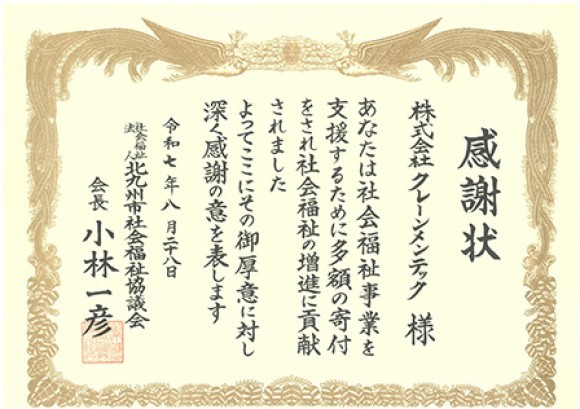 感謝状
株式会社 クレーンメンテック 様
あなたは社会福祉事業を
支援するために多額の寄付
をされ社会福祉の増進に貢献
されました
よってここにその御厚意に対し
深く感謝の意を表します
令和七年八月二十八日
社会福祉法人 北九州市社会福祉協議会
会長 小林一彦